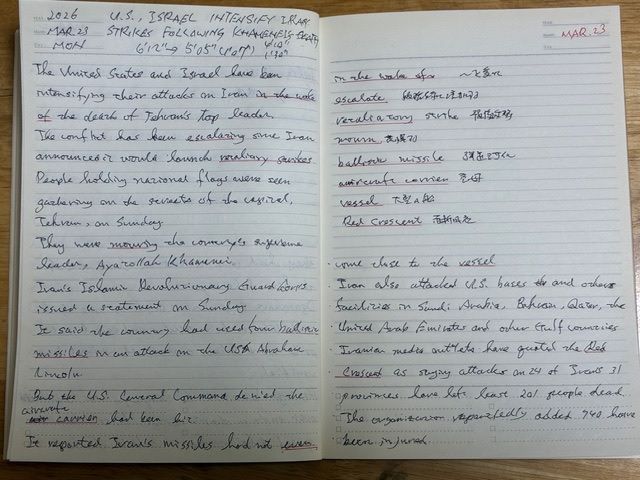 2026
MAR.23
MON
U.S., ISRAEL INTENSIFY IRAN
STRIKES FOLLOWING KHAMENEI'S DEATH
6'12" → 5'05" (1'07")
The United States and Israel have been
intensifying their attacks on Iran in the wake
of the death of Tehran's top leader.
The conflict has been escalating since Iran
announced it would launch
People holding national flags were seen
gathering on the streets of the capital,
Tehran, on Sunday.
They were mourning the country's supreme
leader, Ayatollah Khamenei.
Iran's Islamic Revolutionary Guard Corps
issued a statement on Sunday
It said the country had used four ballistic
missiles in an attack on the USA Abraham
Lincoln
But the U.S. Central Command denied the
aircraft
carrier had been hit.
It reported Iran's missiles had not even
MAR.23
in the wake of
escalate
retaliatory strike
mourn
ballistic missile 弾道ミサイル
aircraft carrier 空母
vessel 大型船
Red Crescent
・come close to the vessel
・Iran also attacked U.S. bases and other
facilities in Saudi Arabia, Bahrain, Qatar, the
United Arab Emirates and other Gulf countries
Iranian media outlets have quoted the Red
Crescent as saying attacks on 24 of Iran's 31
provinces have left least 201 people dead.
The organization reportedly added 740 have
been injured